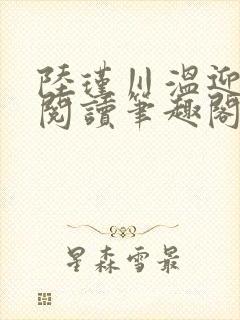 陸瑾川溫迎
閱讀筆趣閣
星森雪最